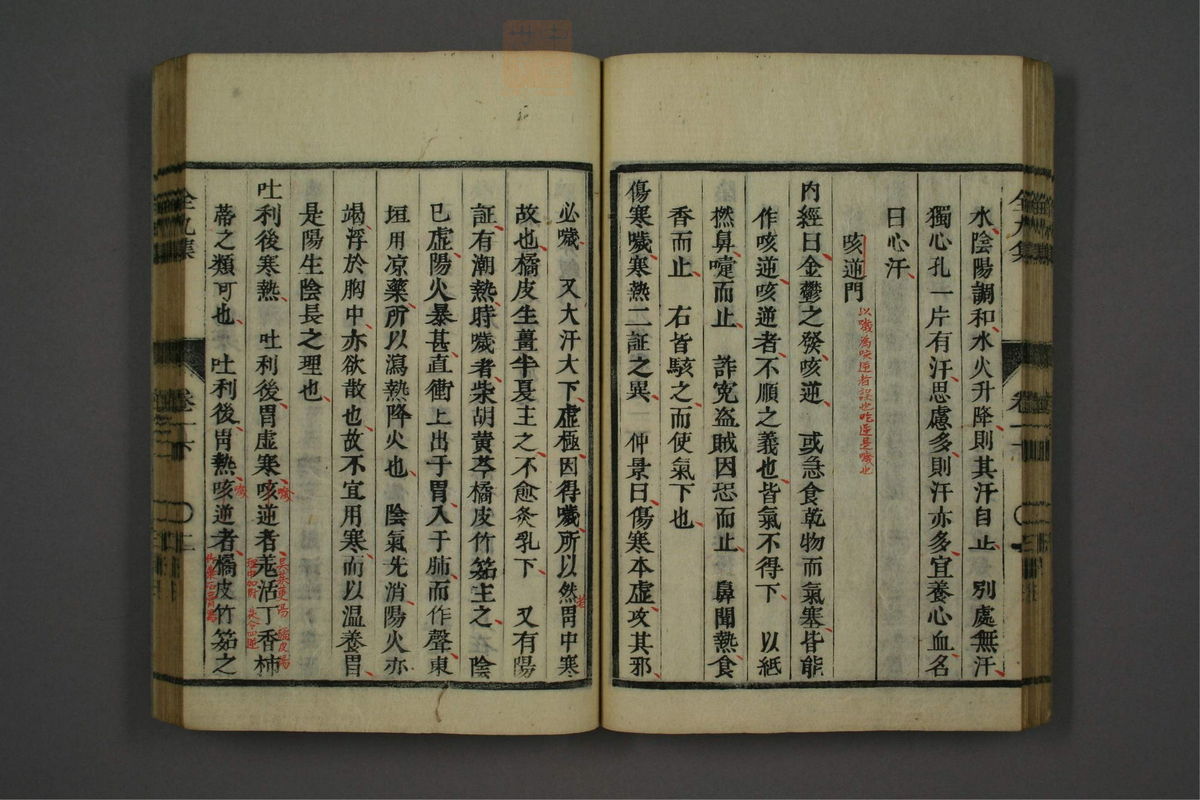 水陰陽調和水火升降則其汗自止　別處無汗
獨心孔一片有汗思慮多則汗亦多宜養心血名
曰心汗
咳逆門
以噦為咳逆者誤也吃逆是噦也
內經曰金鬱之發咳逆　或急食乾物而氣塞皆能
作咳逆咳逆者不順之義也皆氣不得下　以紙
撚鼻嚏而止　詐寃盜賊因恐而止　鼻聞熱食
香而止　右皆駭之而使氣下也
傷寒噦寒熱二証之異　仲景曰傷寒本虛攻其邪
必噦　又大汗大下虛極因得噦所以然胃中寒
故也橘皮生薑半夏主之不愈灸乳下　又有陽
証有潮熱時噦者柴胡黃芩橘皮竹筎主之　陰
已虛陽火暴甚直衝上出于胃入于肺而作聲東
垣用凉藥所以瀉熱降火也　陰氣先消陽火亦
竭浮於胸中亦欲散也故不宜用寒而以溫養胃
是陽生陰長之理也
吐利後寒熱　吐利後胃虛寒咳逆者羗活丁香柿
蒂之類可也　吐利後胃熱咳逆者橘皮竹筎之
全九集
卷一下
全九集
卷一下